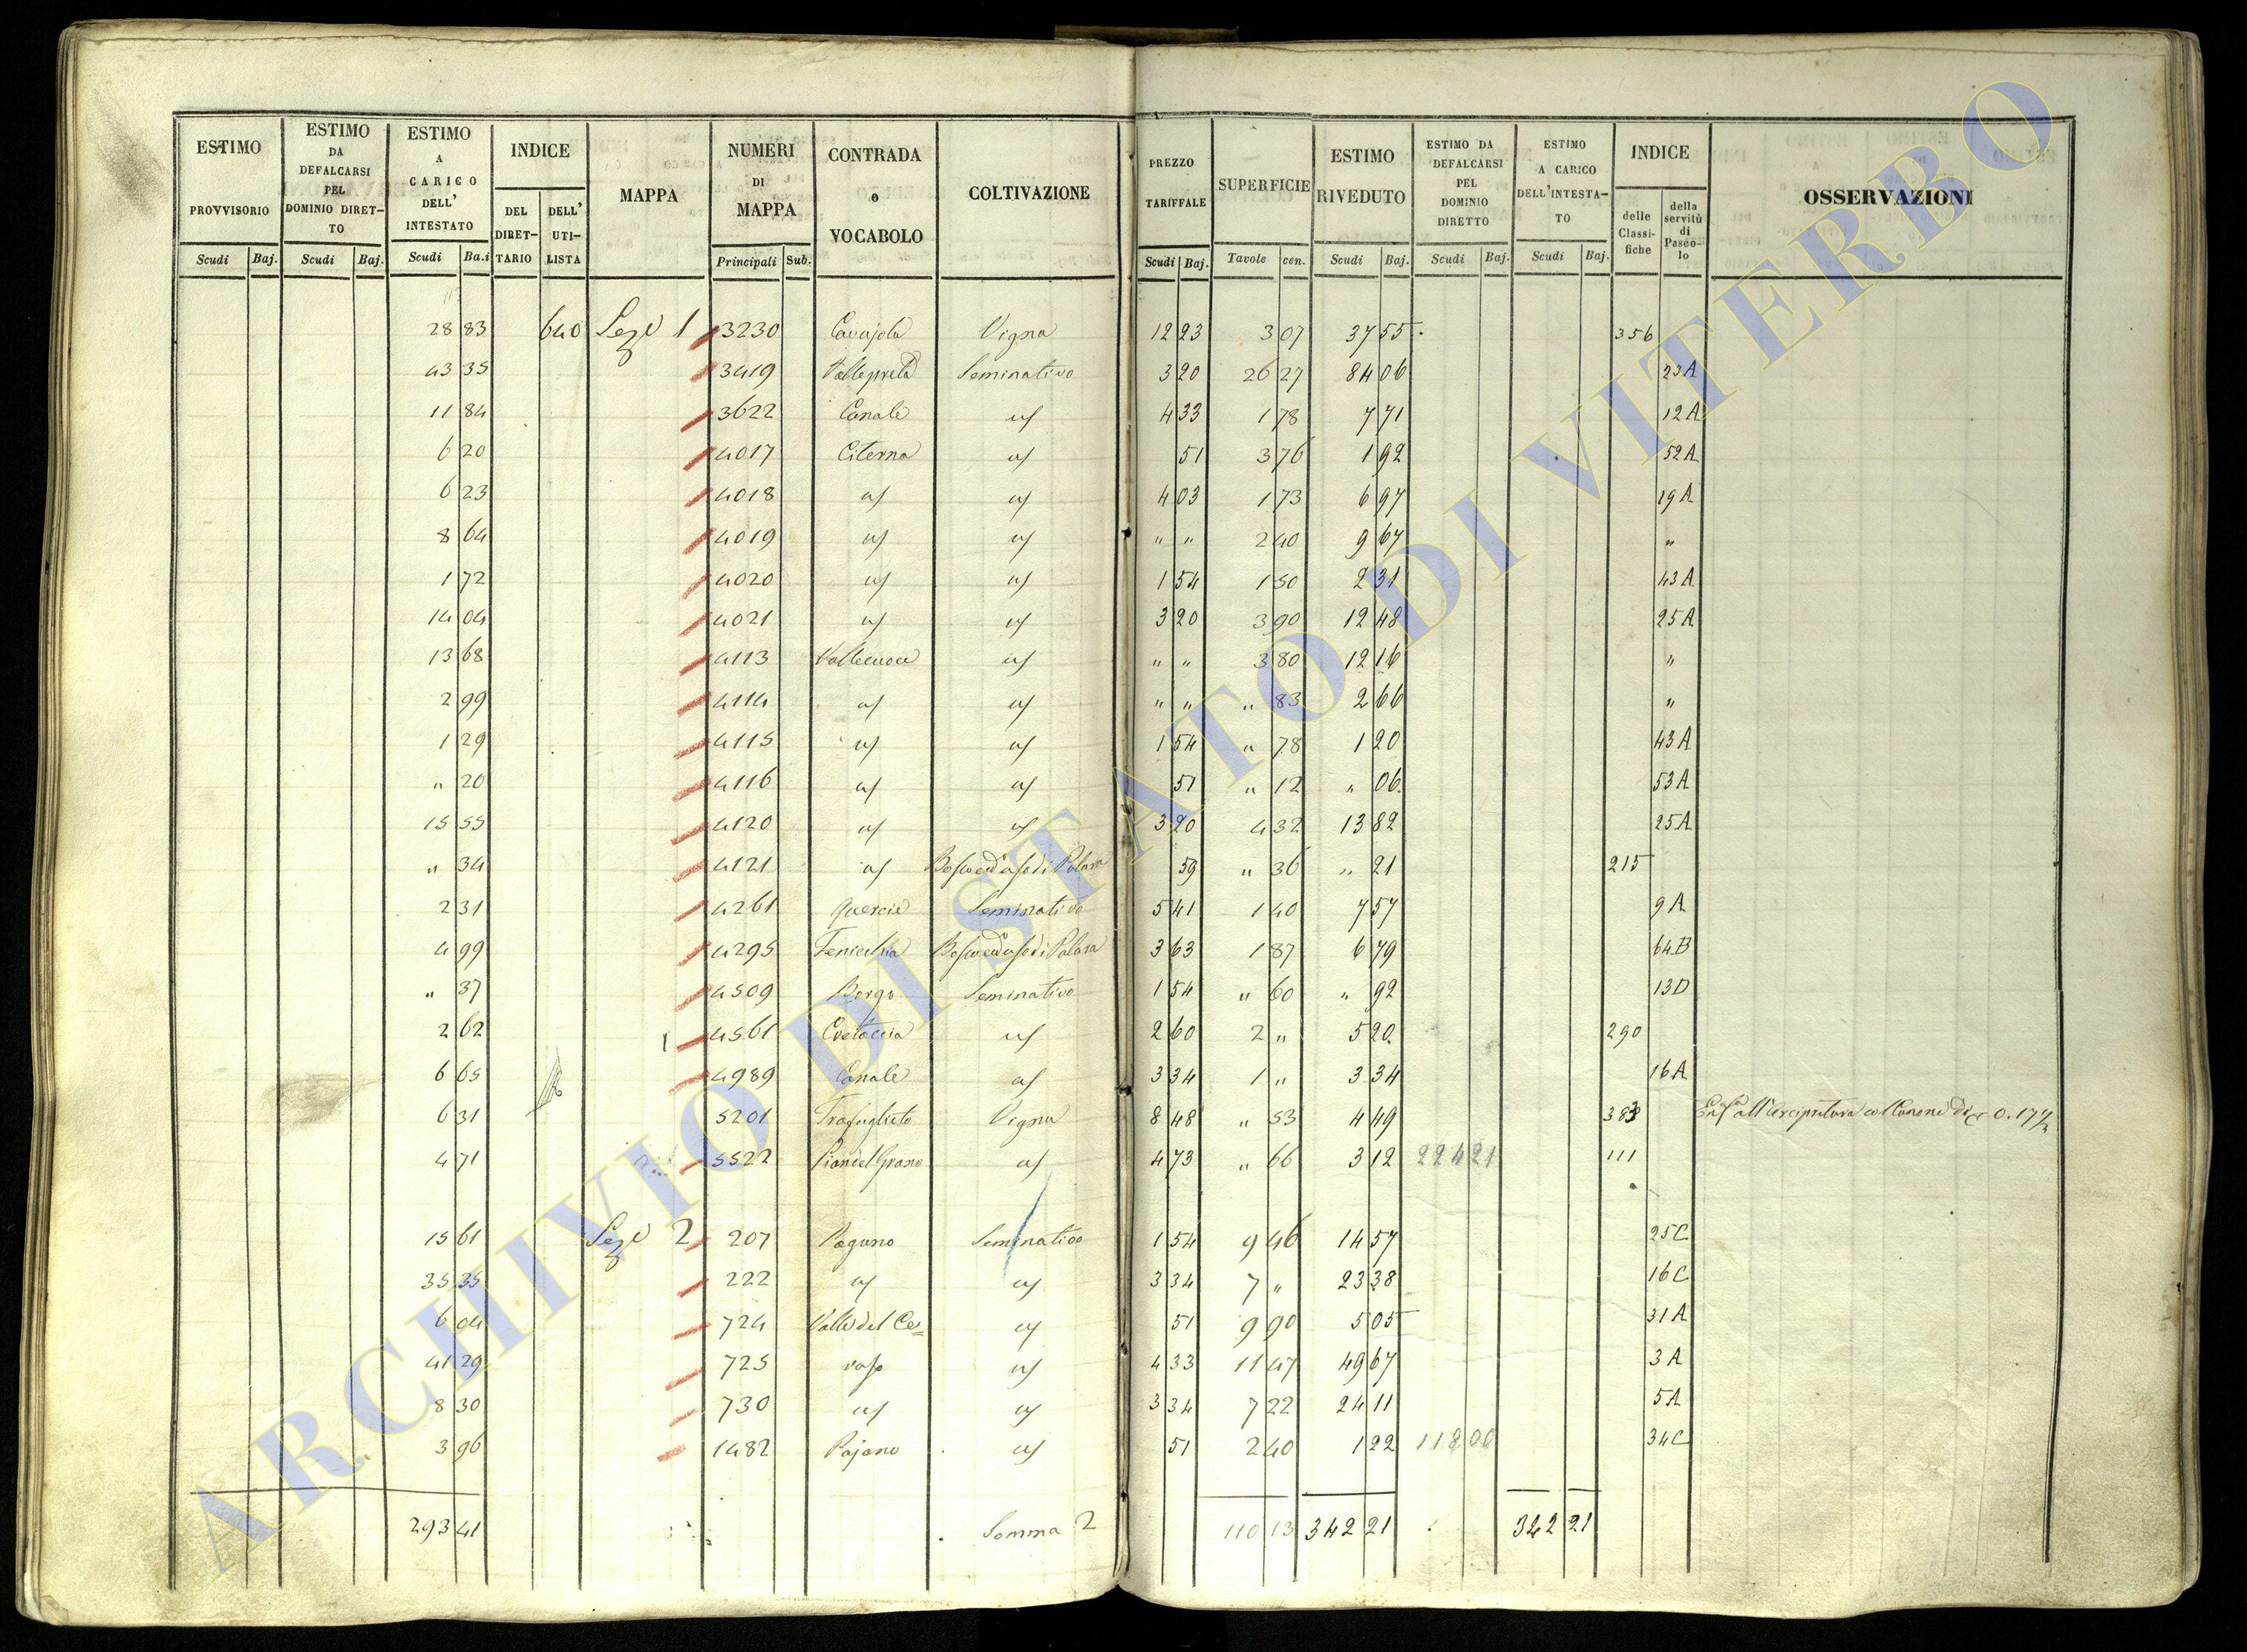 ESTIMO PROVVISORIO Scudi Baj.
ESTIMO DA DEFALCARSI PEL DOMINIO DIRETTO Scudi Baj.
ESTIMO A CARICO DELL' INTESTATO Scudi Ba.i
INDICE DEL DIRETTARIO DELL' UTILISTA
MAPPA
NUMERI DI MAPPA Principali Sub.
CONTRADA o VOCABOLO
COLTIVAZIONE
PREZZO TARIFFALE Scudi Baj.
SUPERFICIE Tavole cen.
ESTIMO RIVEDUTO Scudi Baj.
ESTIMO DA DEFALCARSI PEL DOMINIO DIRETTO Scudi Baj.
ESTIMO A CARICO DELL'INTESTATO Scudi Baj.
INDICE delle Classifiche della servitù di Pascolo
OSSERVAZIONI
28 83 640 Seze 1 3230 Vigna 12 23 3 07 37 55 356
43 35 3419 Seminativo 3 20 26 27 84 06 23A
11 84 3622 Canale " 4 33 1 78 7 71 12A
6 20 4017 Citerna " 51 3 76 1 92 52A
6 23 4018 " " 4 03 1 73 6 97 19A
8 64 4019 " " " " 2 40 9 67 "
1 72 4020 " " 1 54 1 50 2 31 43A
14 04 4021 " " 3 20 3 90 12 48 25A
13 68 4113 Vallecuoca " " " 3 80 12 16 "
2 99 4114 " " " " " 83 2 66 "
1 29 4115 " " 1 54 " 78 1 20 43A
" 20 4116 " " 51 " 12 " 06 53A
15 55 4120 " " 3 20 4 32 13 82 25A
" 34 4121 " 59 " 36 " 21 215
2 31 4261 Quercie Seminativo 5 41 1 40 7 57 9A
4 99 4295 3 63 1 87 6 79 64B
" 37 4509 Borgo Seminativo 1 54 " 60 " 92 13D
2 62 1 4561 Cretaccia " 2 60 2 " 5 20 290
6 65 4989 Canale " 3 34 1 " 3 34 16A
6 31 5201 Vigna 8 48 " 53 4 49 383 all'Arcipretura col Canone di 0.17½
4 71 5522 Pian del Grano " 4 73 " 66 3 12 224 21 111
15 61 Seze 2 207 Pagano Seminativo 1 54 9 46 14 57 25C
35 35 222 " " 3 34 7 " 23 38 16C
6 04 724 Valle del Ce= " 51 9 90 5 05 31A
41 29 725 raso " 4 33 11 47 49 67 3A
8 30 730 " " 3 34 7 22 24 11 5A
3 96 1482 Pajano " 51 2 40 1 22 118 00 34C
293 41 Somma 2 110 13 342 21 342 21
ARCHIVIO DI STATO DI VITERBO